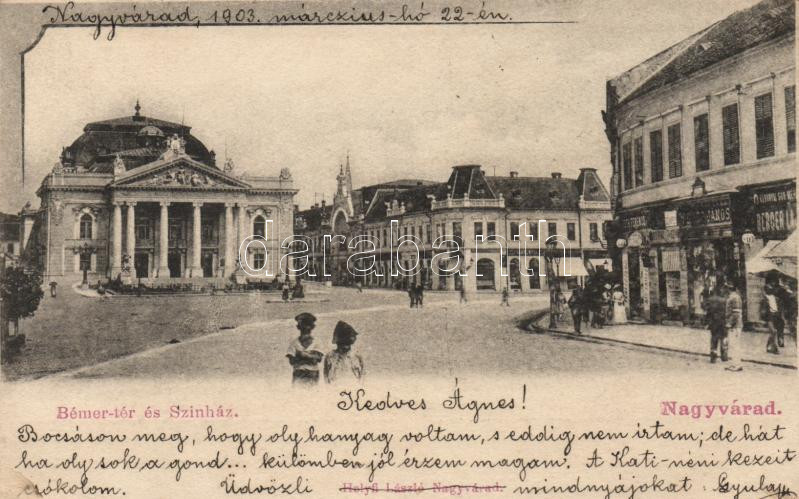 Nagyvárad, 1903. márczius-hó 22-én.
BERGER
darabanth.com
Bémer-tér és Szinház.
Kedves Ágnes!
Nagyvárad.
Bocsáson meg, hogy oly hanyag voltam, s eddig nem irtam; de hát
ha oly sok a gond... különben jól érzem magam. A Kati-néni kezeit
csókolom. Üdvözli mindnyájokat Gyula
Helyfi László Nagyvárad.